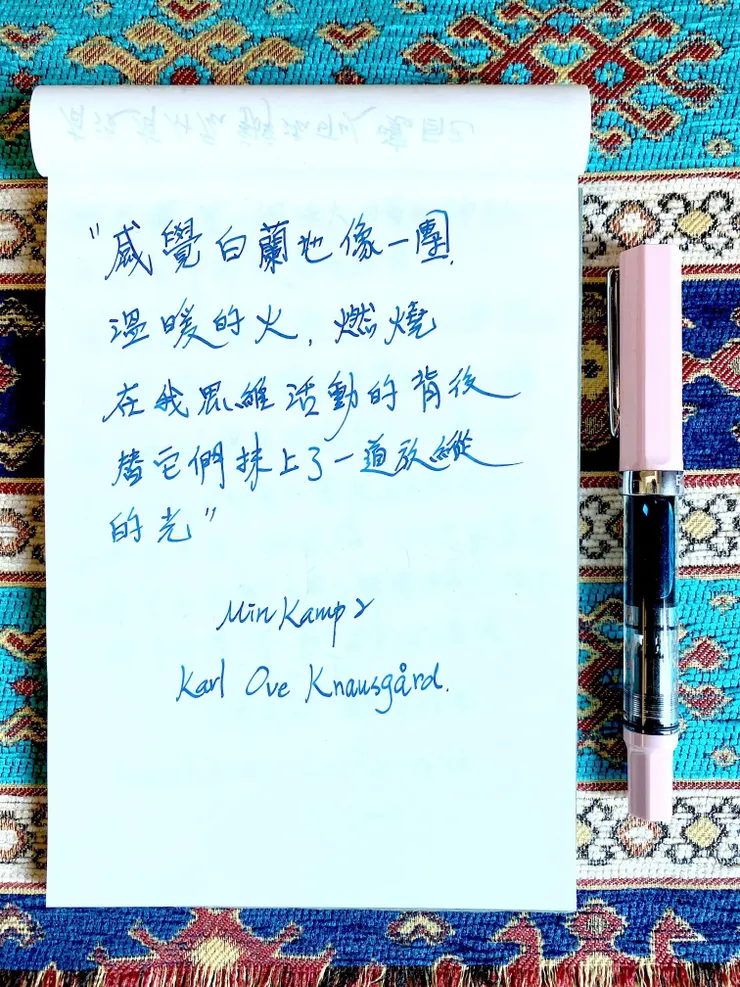 "感覺白蘭地像一團
溫暖的火，燃燒
在我思維活動的背後
替它們抹上了一道放縱
的光"
Min Kamp 2
Karl Ove Knausgård.